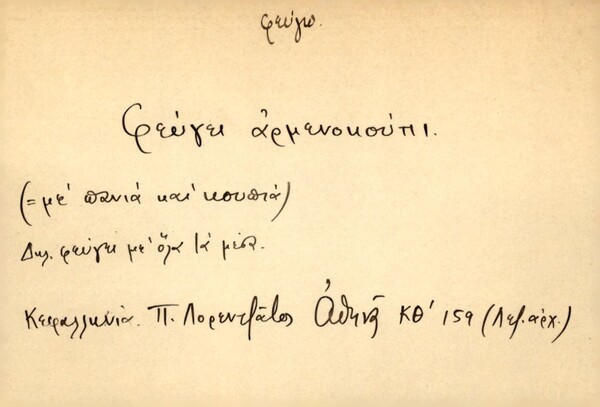 φεύγω.
Φεύγει ἀρμενοκούπι.
(= μέ πανιά καί κουπιά)
Δηλ. φεύγει μέ ὅλα τά μέσα.
Κεφαλληνία. Π. Λορεντζᾶτος Ἀθηνᾶ ΚΘ' 159 (Λεξ. ἀρχ.)